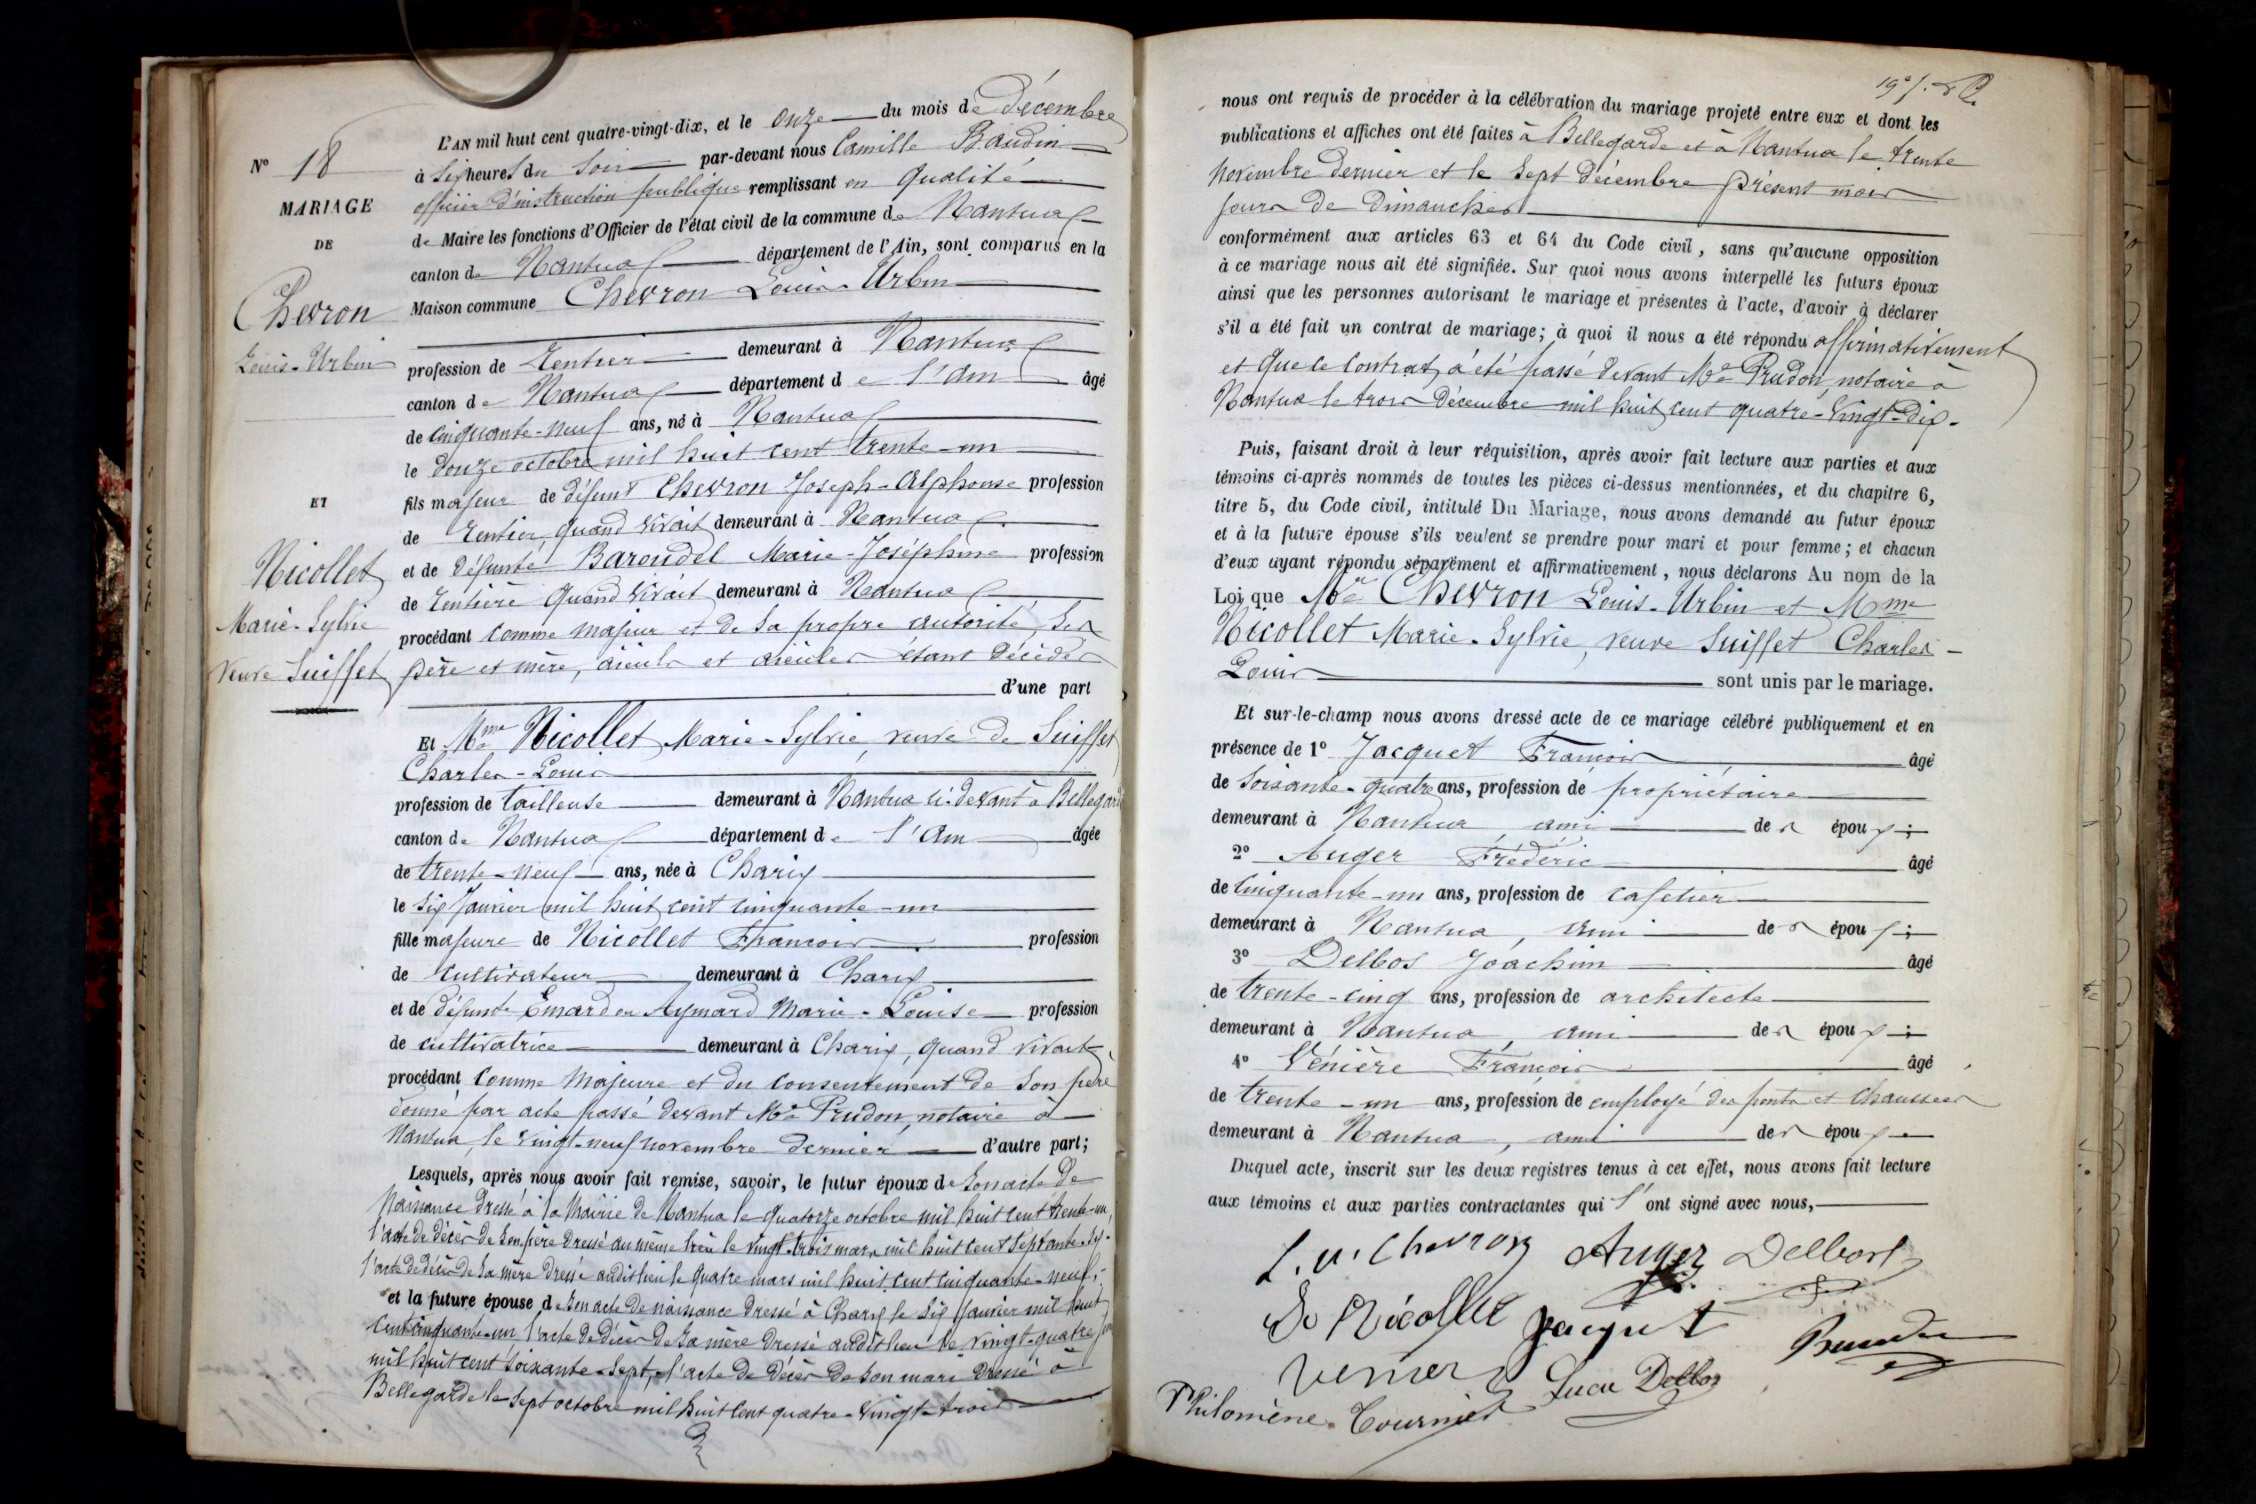 N° 18
MARIAGE
DE
Chevron
Louis-Urbin
ET
Nicollet
Marie-Sylvie
veuve Suiffet
L'AN mil huit cent quatre-vingt-dix, et le onze du mois de Décembre
à six heures du soir par-devant nous Camille Baudin
officier d'instruction publique remplissant en qualité
de Maire les fonctions d'Officier de l'état civil de la commune de Nantua
canton de Nantua département de l'Ain, sont comparus en la
Maison commune Chevron Louis-Urbin
profession de Rentier demeurant à Nantua
canton de Nantua département de l'Ain âgé
de cinquante-neuf ans, né à Nantua
le douze octobre mil huit cent trente-un
fils majeur de défunt Chevron Joseph-Alphonse profession
de rentier quand vivait demeurant à Nantua
et de défunte Baroudel Marie-Joséphine profession
de rentière quand vivait demeurant à Nantua
procédant comme majeur et de sa propre autorité, ses
père et mère, aïeuls et aïeules étant décédés
d'une part
Et Mme Nicollet Marie-Sylvie, veuve de Suiffet
Charles-Louis
profession de tailleuse demeurant à Nantua ci-devant à Bellegarde
canton de Nantua département de l'Ain âgée
de trente-neuf ans, née à Charix
le six Janvier mil huit cent cinquante-un
fille majeure de Nicollet François profession
de cultivateur demeurant à Charix
et de défunte Emard ou Aymard Marie-Louise profession
de cultivatrice demeurant à Charix, quand vivait
procédant comme majeure et du consentement de son père
donné par acte passé devant Me Prudon, notaire à
Nantua, le vingt-neuf novembre dernier d'autre part;
Lesquels, après nous avoir fait remise, savoir, le futur époux de son acte de
naissance dressé à la Mairie de Nantua le quatorze octobre mil huit cent trente-un,
l'acte de décès de son père dressé au même lieu le vingt-trois mars mil huit cent septante-six.
l'acte de décès de sa mère dressé audit lieu le quatre mars mil huit cent cinquante-neuf;
et la future épouse de son acte de naissance dressé à Charix le six Janvier mil huit
cent cinquante-un, l'acte de décès de sa mère dressé audit lieu le vingt-quatre
mil huit cent soixante-sept, l'acte de décès de son mari dressé à
Bellegarde le sept octobre mil huit cent quatre-vingt-trois
nous ont requis de procéder à la célébration du mariage projeté entre eux et dont les
publications et affiches ont été faites à Bellegarde et à Nantua le trente
novembre dernier et le sept décembre présent mois
jours de Dimanches
conformément aux articles 63 et 64 du Code civil, sans qu'aucune opposition
à ce mariage nous ait été signifiée. Sur quoi nous avons interpellé les futurs époux
ainsi que les personnes autorisant le mariage et présentes à l'acte, d'avoir à déclarer
s'il a été fait un contrat de mariage; à quoi il nous a été répondu affirmativement
et que ce contrat a été passé devant Me Prudon, notaire à
Nantua le trois Décembre mil huit cent quatre-vingt-dix.
Puis, faisant droit à leur réquisition, après avoir fait lecture aux parties et aux
témoins ci-après nommés de toutes les pièces ci-dessus mentionnées, et du chapitre 6,
titre 5, du Code civil, intitulé Du Mariage, nous avons demandé au futur époux
et à la future épouse s'ils veulent se prendre pour mari et pour femme; et chacun
d'eux ayant répondu séparément et affirmativement, nous déclarons Au nom de la
Loi que Mr Chevron Louis-Urbin et Mme
Nicollet Marie-Sylvie, veuve Suiffet Charles-
Louis sont unis par le mariage.
Et sur-le-champ nous avons dressé acte de ce mariage célébré publiquement et en
présence de 1° Jacquet François âgé
de soixante-quatre ans, profession de propriétaire
demeurant à Nantua ami des époux;
2° Auger Frédéric âgé
de cinquante-un ans, profession de cafetier
demeurant à Nantua, ami des époux;
3° Delbos Joachim âgé
de trente-cinq ans, profession de architecte
demeurant à Nantua, ami des époux;
4° Vénière François âgé
de trente-un ans, profession de employé des ponts et chaussées
demeurant à Nantua, ami des époux
Duquel acte, inscrit sur les deux registres tenus à cet effet, nous avons fait lecture
aux témoins et aux parties contractantes qui l'ont signé avec nous,
L. U. Chevron Auger Delbos
S Nicollet Jacquet
Philomène Tournier Delbos